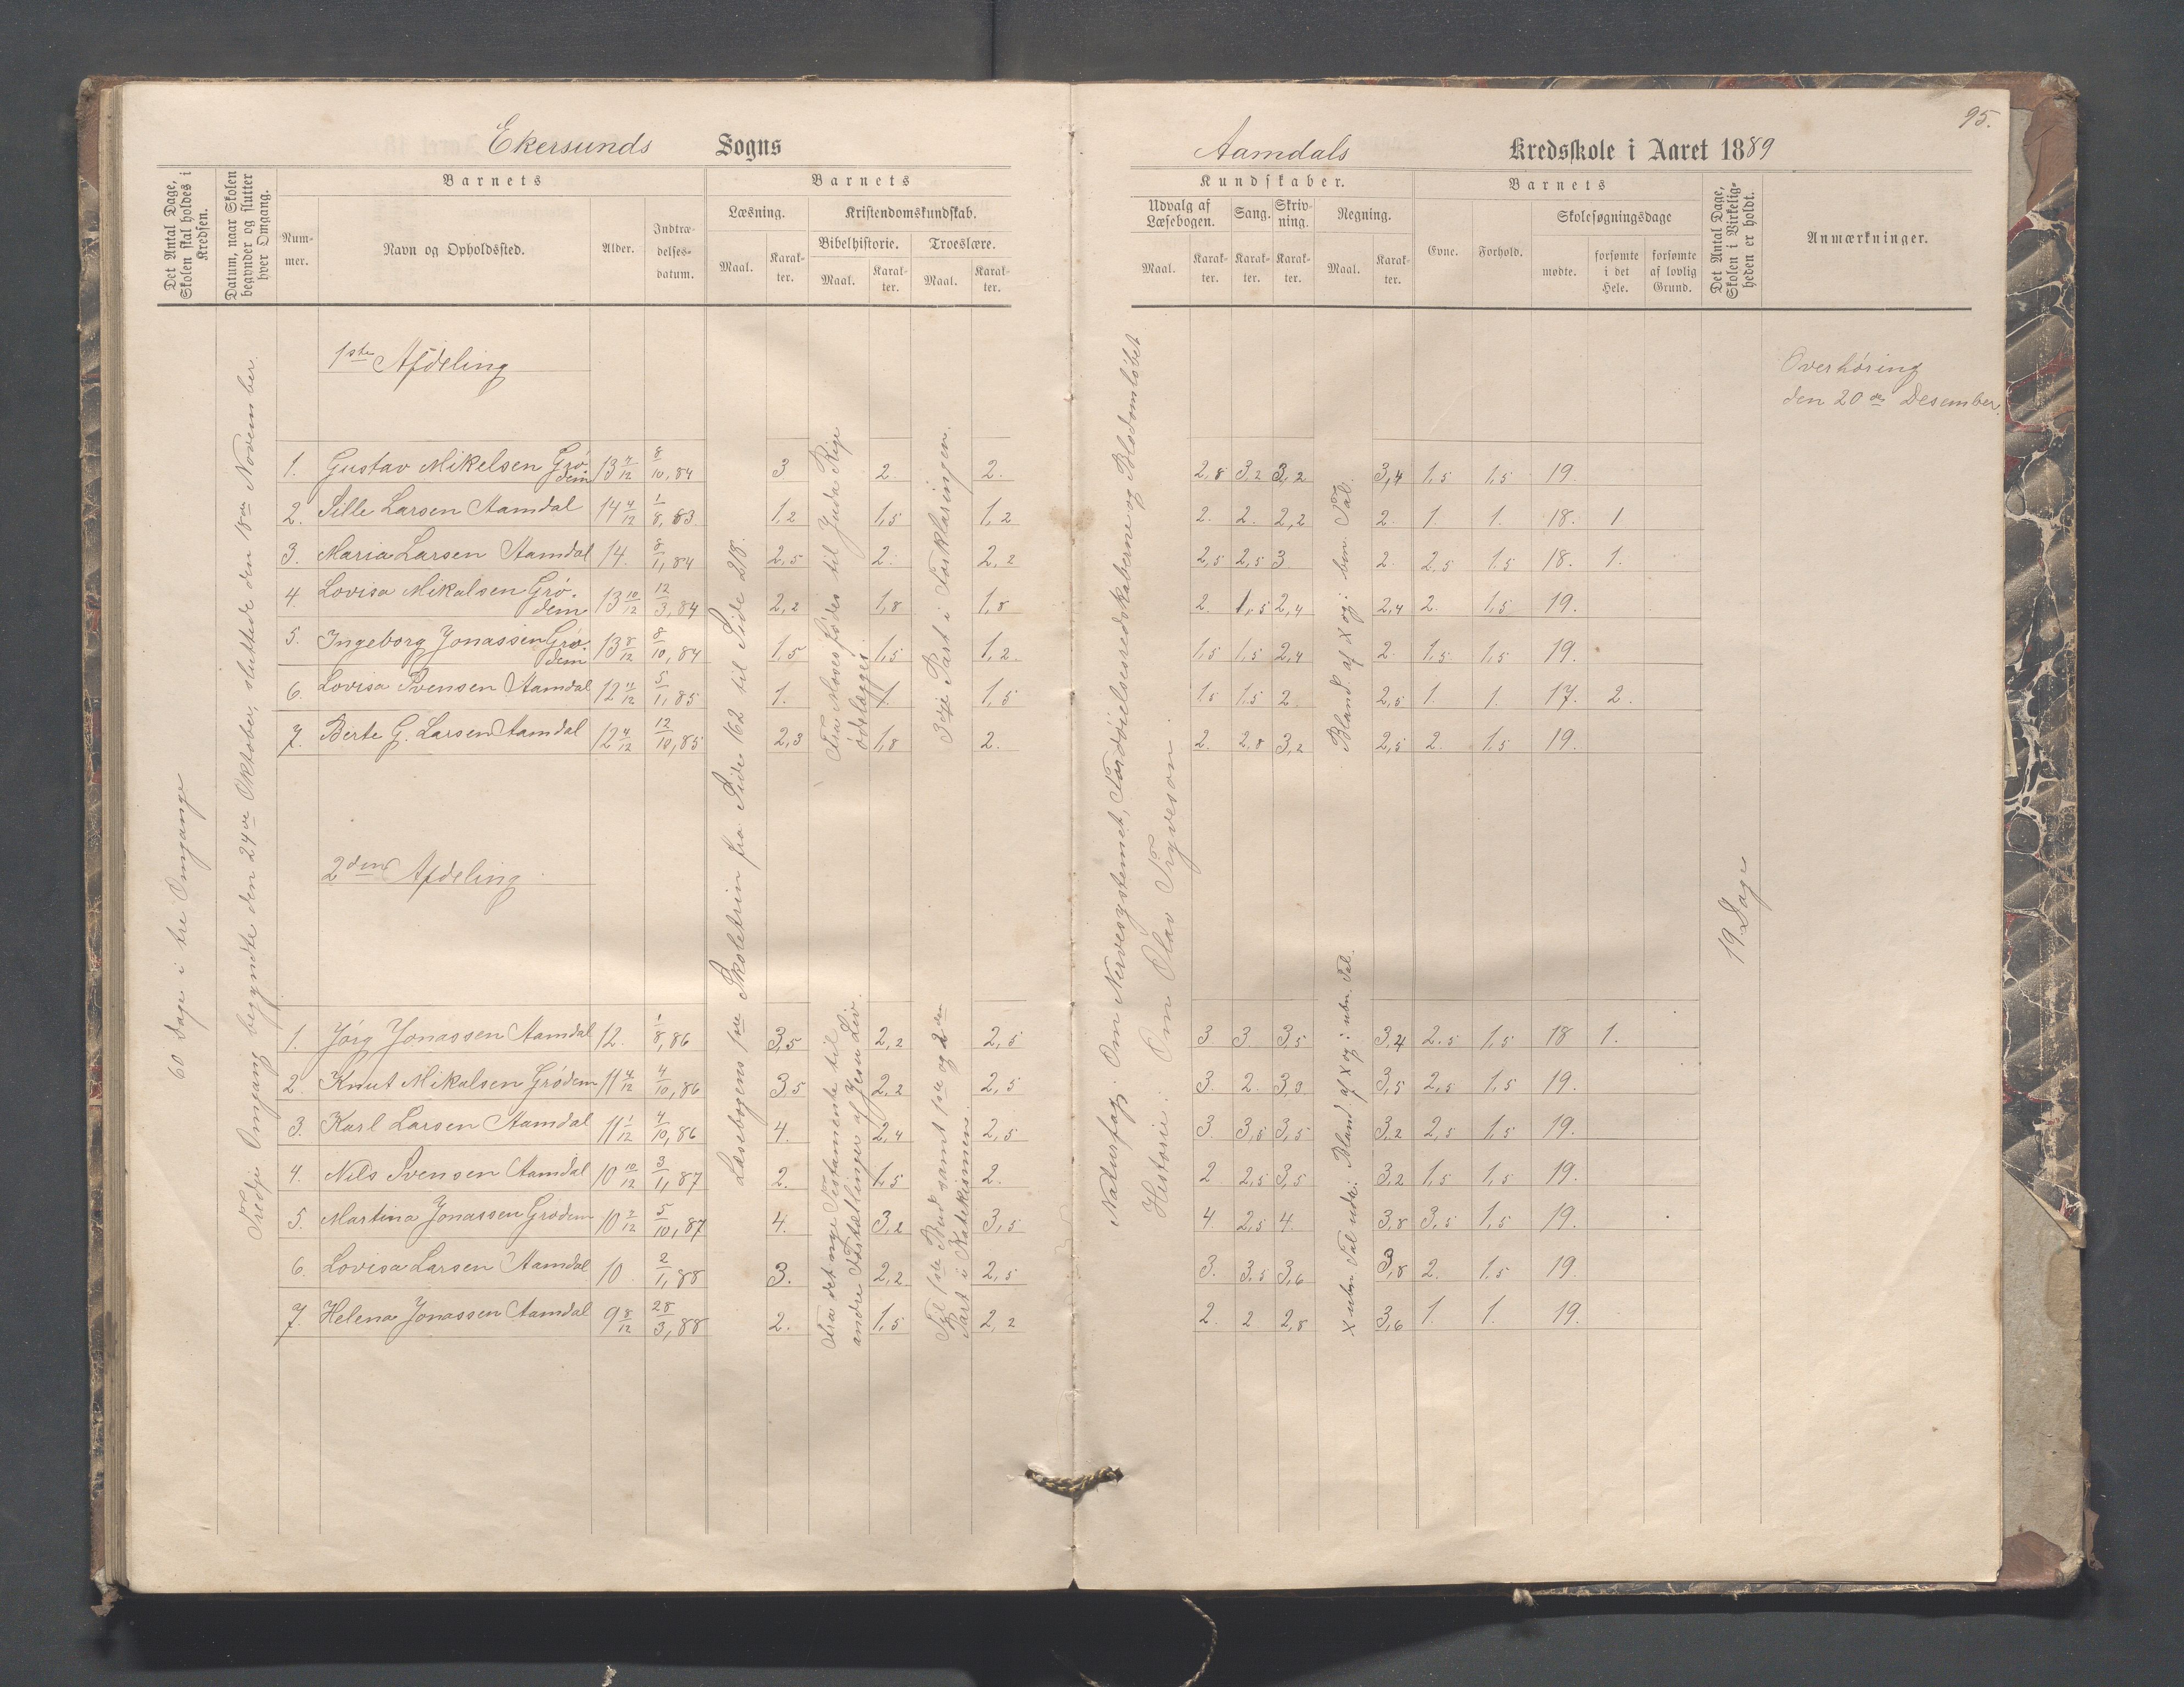 95.
Ekersunds Sogns
Aamdals Kredsskole i Aaret 1889
Det Antal Dage, Skolen skal holdes i Kredsen.
Datum, naar Skolen begynder og slutter hver Omgang.
Barnets
Nummer.
Navn og Opholdssted.
Alder.
Indtrædelsesdatum.
Barnets
Læsning.
Maal.
Karakter.
Kristendomskundskab.
Bibelhistorie.
Maal.
Karakter.
Troeslære.
Maal.
Karakter.
Kundskaber.
Udvalg af Læsebogen.
Maal.
Karakter.
Sang.
Karakter.
Skrivning.
Karakter.
Regning.
Maal.
Karakter.
Barnets
Evne.
Forhold.
Skolesøgningsdage
mødte.
forsømte i det Hele.
forsømte af lovlig Grund.
Det Antal Dage, Skolen i Virkeligheden er holdt.
Anmærkninger.
60 Dage i tre Omgange
Tredje Omgang begyndte den 24de Oktober, sluttede den 18de November.
Læsebogens 1ste Skoletrin fra Side 162 til Side 218.
Naturfag: Om Nervesystemet, Fordøielsesredskaberne og Blodomløbet
Historie: Om Olav Trygveson.
19 Dage
Overhøring
den 20de Desember.
1ste Afdeling
Fra Moses fødes til Juda Rige
ødelægges
3dje Part i Forklaringen.
Bland. af X og : ben. Tal.
1. Gustav Mikelsen Grødem 13 7/12 8/10, 84 3 2. 2. 2,8 3,2 3,2 3,4 1,5 1,5 19.
2. Sille Larsen Aamdal 14 4/12 1/8, 83 1,2 1,5 1,2 2. 2. 2,2 2. 1. 1. 18. 1
3. Maria Larsen Aamdal 14. 8/1, 84 2,5 2. 2,2 2,5 2,5 3 2 2,5 1,5 18. 1.
4. Lovisa Mikalsen Grødem 13 10/12 12/3, 84 2,2 1,8 1,8 2. 1,5 2,4 2,4 2. 1,5 19.
5. Ingeborg Jonassen Grødem 13 8/12 8/10, 84 1,5 1,5 1,2 1,5 1,5 2,4 2. 1,5 1,5 19.
6. Lovisa Svensen Aamdal 12 11/12 5/1, 85 1. 1. 1,5 1,5 1,5 2 2,5 1. 1. 17. 2.
7. Berte G. Larsen Aamdal 12 4/12 12/10, 85 2,3 1,8 2. 2. 2,8 3,2 2,5 2. 1,5 19.
2den Afdeling
Fra det nye Testamente til
andre Fortællinger af Jesu Liv.
Til 1ste Bud samt 1ste og 2den
Part i Katekismen.
X ubn. Tal udv. Bland. af X og : ubn. Tal.
1. Jørg Jonassen Aamdal 12. 1/8, 86 3,5 2,2 2,5 3 3. 3,5 3,4 2,5 1,5 18 1.
2. Knut Mikalsen Grødem 11 4/12 4/10, 86 3,5 2,2 2,5 3. 2. 3,0 3,5 2,5 1,5 19.
3. Karl Larsen Aamdal 11 1/12 4/10, 86 4. 2,4 2,5 3. 3,5 3,5 3,2 2,5 1,5 19.
4. Nils Svensen Aamdal 10 10/12 3/1, 87 2. 1,5 2. 2 2,5 3,5 3,2 1,5 1,5 19.
5. Martina Jonassen Grødem 10 7/12 5/10, 87 4. 3,2 3,5 4. 2,5 4. 3,8 3,5 1,5 19.
6. Lovisa Larsen Aamdal 10. 2/1, 88 3. 2,2 2,5 3. 3,5 3,6 3,8 2. 1,5 19.
7. Helena Jonassen Aamdal 9 8/12 28/3, 88 2. 1,5 2,2 2. 2 2,8 3,6 1. 1. 19.